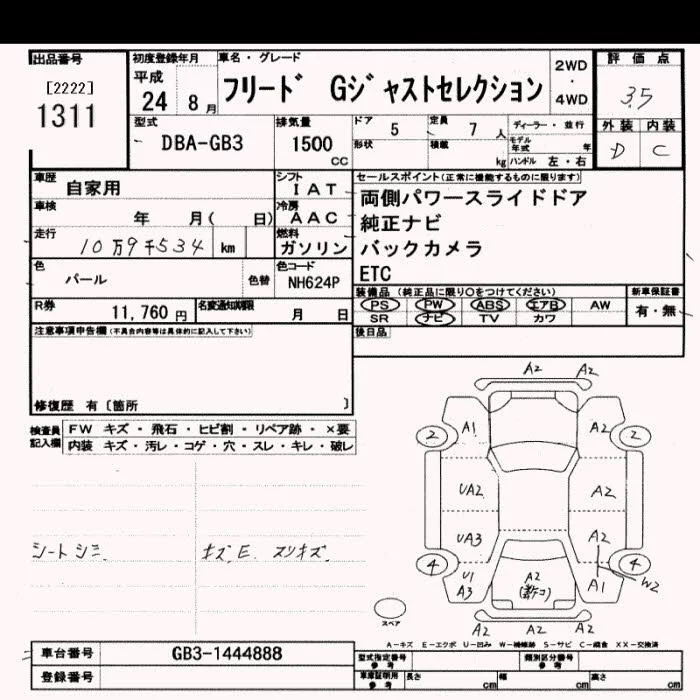 出品番号
[2222]
1311
初度登録年月
平成
24 8 月
車名・グレード
フリード Gジャストセレクション
2WD
・
4WD
評価点
3.5
外装 内装
D C
型式
DBA-GB3
排気量
1500
cc
ドア 5
定員 7 人
ディーラー・並行
形状
積載 kg
モデル年式 年
ハンドル 左・右
車歴 自家用
シフト IAT
車検 年 月( 日)
冷房 AAC
走行 10万9千534 km
燃料 ガソリン
色 パール
色替
色コード NH624P
R券 11,760 円
名変通知期限 月 日
セールスポイント(正常に機能するものに限ります)
両側パワースライドドア
純正ナビ
バックカメラ
ETC
装備品 (純正品に限り〇をつけてください)
新車保証書
PS PW ABS エアB AW
SR ナビ TV カワ
有・無
後日品
注意事項申告欄(不具合内容等は具体的に記入して下さい)
修復歴 有〔箇所 〕
検査員記入欄
FW キズ・飛石・ヒビ割・リペア跡・×要
内装 キズ・汚レ・コゲ・穴・スレ・キレ・破レ
シートシミ
キズ,E スリキズ
A2 A2
2 A1 A2 2
UA2 A2
UA3 A2
4 U1 A3 A2 A1 W2 4
A2 A2 A2
スペア
A-キズ E-エクボ U-凹み W-補修跡 S-サビ C-腐食 XX-交換済
車台番号 GB3-1444888
登録番号
型式指定番号 参考
類別区分番号 参考
車庫証明用 参考
長さ cm
幅 cm
高さ cm